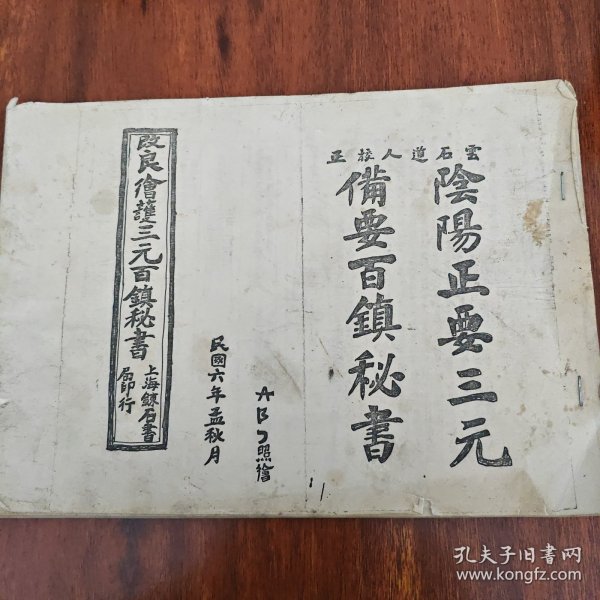 雲石道人校正
陰陽正要三元
備要百鎮秘書
ABJ照繪
民國六年孟秋月
改良繪護三元百鎮秘書
上海鍊石書
局印行
孔夫子旧书网
www.kongfz.com